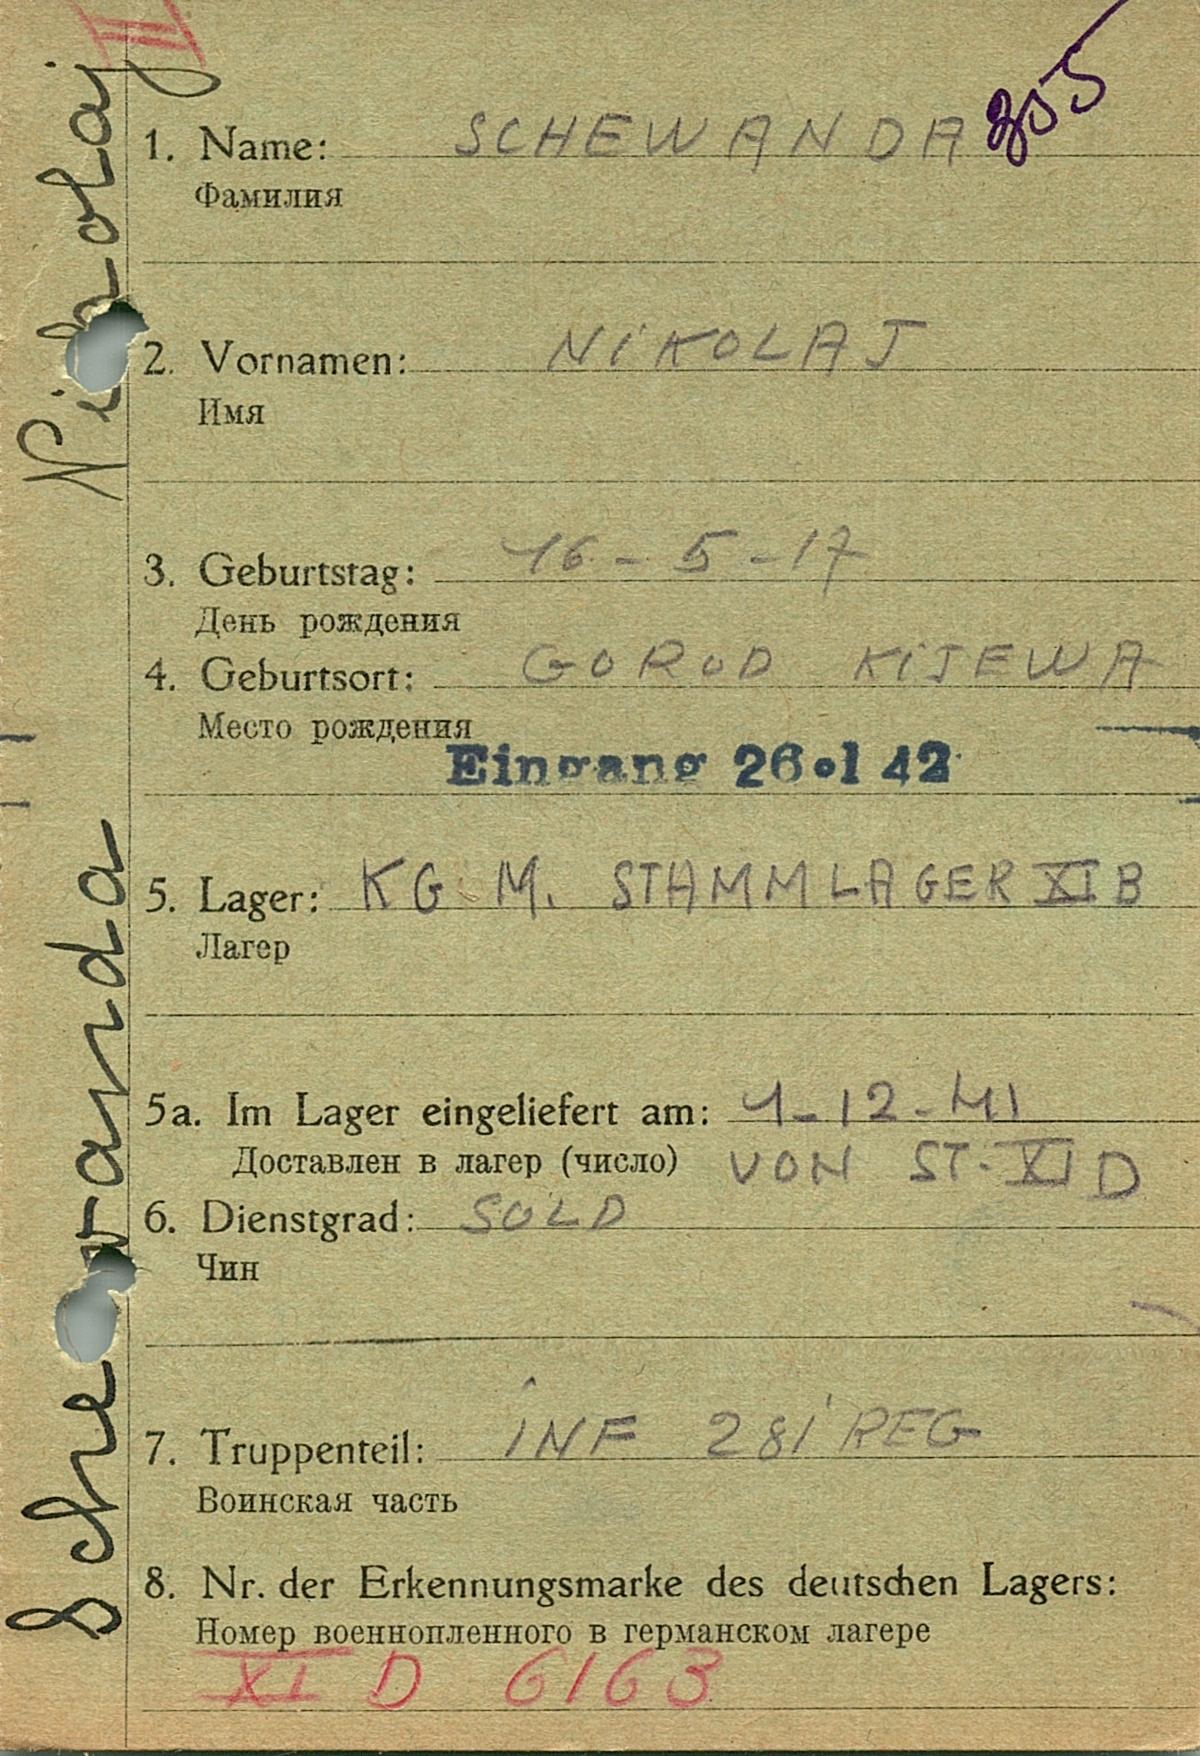 II
Schewanda Nikolaj
805
1. Name: SCHEWANDA
Фамилия
2. Vornamen: NIKOLAJ
Имя
3. Geburtstag: 16-5-17
День рождения
4. Geburtsort: GOROD KIJEWA
Место рождения
Eingang 26.1 42
5. Lager: KG. M. STAMMLAGER XI B
Лагер
5a. Im Lager eingeliefert am: 1-12-41
Доставлен в лагер (число) VON ST. XI D
6. Dienstgrad: SOLD
Чин
7. Truppenteil: INF 281 REG
Воинская часть
8. Nr. der Erkennungsmarke des deutschen Lagers:
Номер военнопленного в германском лагере
XI D 6163